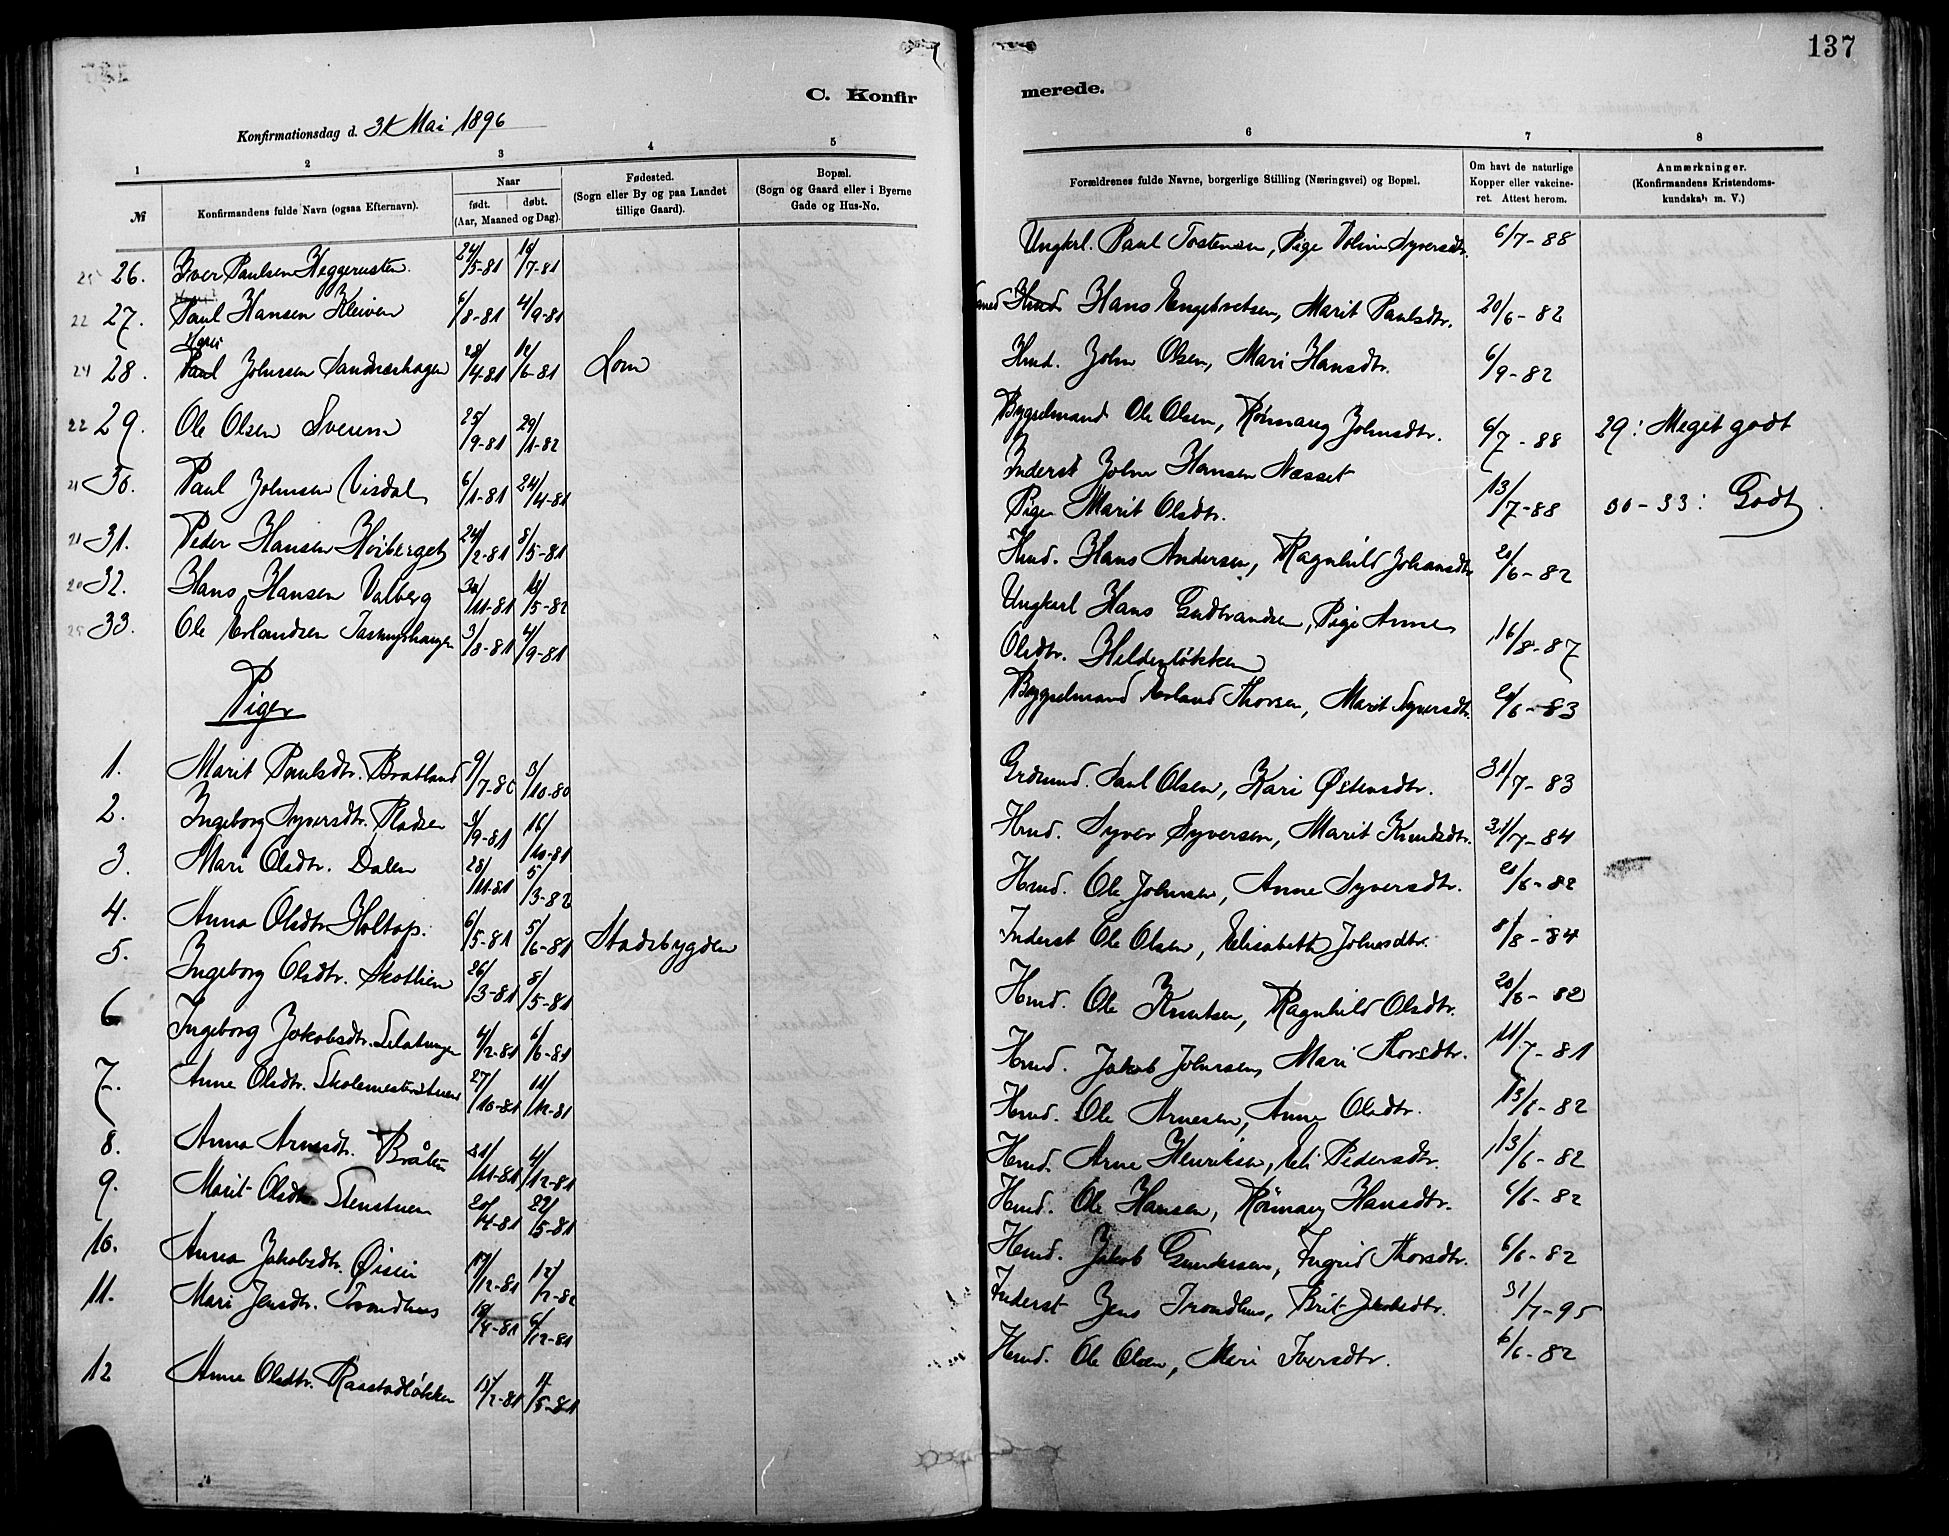 137
C. Konfir
merede.
Konfirmationsdag d. 31 Mai 1896
1 2 3 4 5 6 7 8
№
Konfirmandens fulde Navn (ogsaa Efternavn).
Naar
født. døbt.
(Aar, Maaned og Dag).
Fødested.
(Sogn eller By og paa Landet
tillige Gaard).
Bopæl.
(Sogn og Gaard eller i Byerne
Gade og Hus-No.
Forældrenes fulde Navne, borgerlige Stilling (Næringsvei) og Bopæl.
Om havt de naturlige
Kopper eller vakcine-
ret. Attest herom.
Anmærkninger.
(Konfirmandens Kristendoms-
kundskab m. V.)
25 26. Iver Paulsen Heggerusten. 24/5-81 10/7-81
22 27. Paul Hansen Kleiven 6/8-81 4/9-81
24 28. Johnsen Sandnæshagen 28/4-81 12/6-81 Lom
22 29. Ole Olsen Sveen 25/9-81 29/1-82
21 30. Paul Johnsen Visdal 6/1-81 24/4-81
21 31. Peder Hansen Høiberget 24/2-81 8/5-81
20 32. Hans Hansen Valberg 30/11-81 18/5-82
25 33. Ole Erlandsen 3/8-81 4/9-81
Piger
1. Marit Paulsdtr. Bratland 9/7-80 3/10-80
2. Ingeborg Syversdtr. Pladsen 3/9-81 16/10-81
3. Mari Olsdtr. Dalen 28/11-81 5/3-82
4. Anna Olsdtr. Holtop. 6/5-81 5/6-81 Stadsbygden
5. Ingeborg Olsdtr. Skotlien 26/3-81 8/5-81
6 Ingeborg Jakobsdtr. 4/2-81 6/6-81
7. Anne Olsdtr. Skolemesterstuen 27/10-81 11/12-81
8. Anna Arnesdtr. Bråten 31/11-81 4/12-81
9. Marit Olsdtr. Stenstuen 20/4-81 22/5-81
10. Anna Jakobsdtr. Øien 17/12-81 12/2-82
11. Mari Jensdtr. Trondhus 18/4-81 6/12-81
12 Anne Olsdtr. Raastadløkken 13/2-81 17/5-81
Ungkrl. Paul Tostensen, Pige Syversdtr. 6/7-88
Hans Engebretsen, Marit Paulsdtr. 20/6-82
Hmd. John Olsen, Mari Hansdtr. 6/9-82
Bygselmand Ole Olsen, Rønnaug Johnsdtr. 6/7-88 29: Meget godt
Inderst John Hansen Næsset
Pige Marit Olsdtr. 13/7-88 30-33: Godt
Hmd. Hans Andersen, Ragnhild Johansdtr 20/6-82
Ungkarl Hans Gudbrandsen, Pige Anne
Olsdtr. 16/8-87
Bygselmand Erland Thorsen, Marit Syversdtr. 20/6-83
Grdmd. Paul Olsen, Kari Østensdtr. 31/7-83
Hmd. Syver Syversen, Marit Knudsdtr. 31/7-84
Hmd. Ole Johnsen, Anne Syversdtr. 20/6-82
Inderst Ole Olsen, Elisabeth Johnsdtr. 8/8-84
Hmd. Ole Knutsen, Ragnhild Olsdtr. 20/6-82
Hmd. Jakob Johnsen, Mari Thorsdtr. 11/7-81
Hmd. Ole Arnesen, Anne Olsdtr. 13/6-82
Hmd. Arne Henriksen, Eli Pedersdtr. 13/6-82
Hmd. Ole Hansen, Rønnaug Hansdtr. 6/6-82
Hmd. Jakob Gundersen, Ingrid Thorsdtr. 6/6-82
Inderst Jens Trondhus, Brit Jakobsdtr. 31/7-95
Hmd. Ole Olsen, Mari Iversdtr. 6/6-82